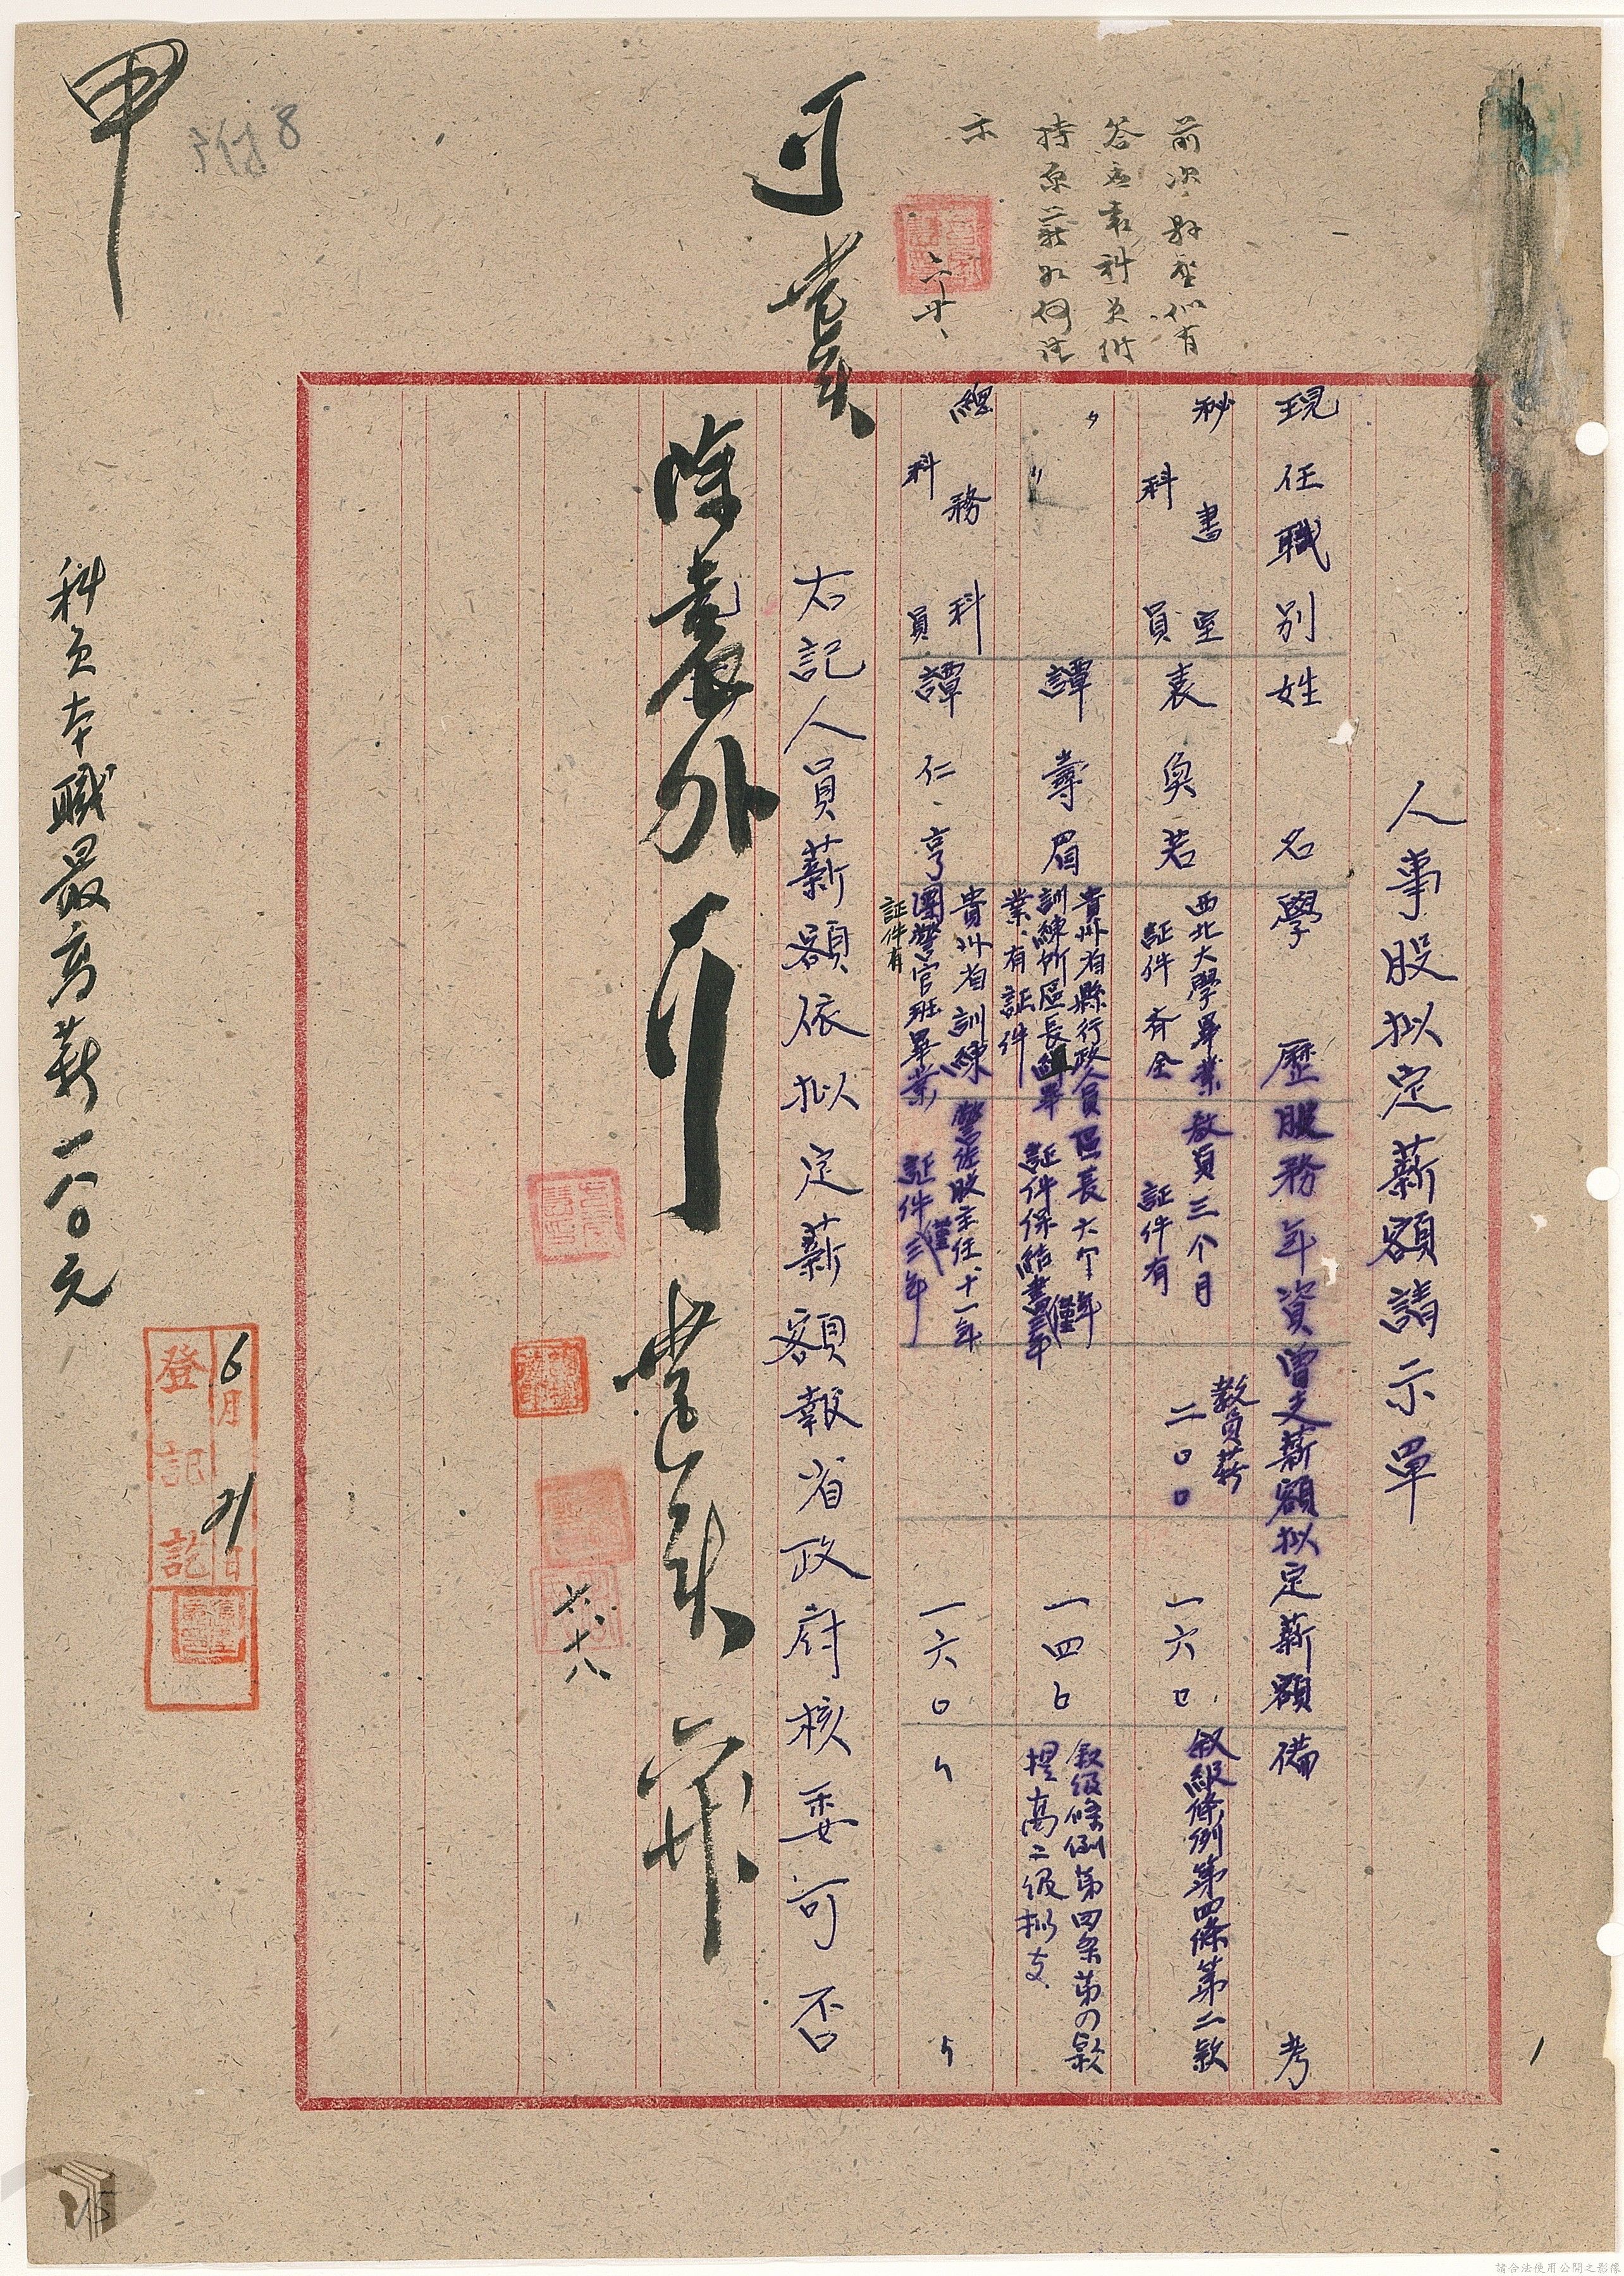 人事股拟定薪額請示單
現任職別 姓名 學歷 服務年資 曾支薪額 拟定薪額 備考
秘書室
科員 袁奐若 西北大學畢業
証件齊全 教員三个月
証件有 教員薪
二〇〇 一六〇 叙級條例第四條第二款
〃 〃 譚壽眉 貴州省縣行政人員
訓練所區長組畢
業、有証件 區長六个年
証件保結書僅三年 一四〇 叙級條例第四条第四款
提高二級拟支
總務科
科員 譚仁亨 貴州省訓練
團警官班畢業
証件有 警佐股主任、十一年
証件僅弍年 一六〇 〃 〃
右記人員薪額依拟定薪額報省政府核委可否
前次縣座似有
答应袁科員維
持原薪如何請
示
六、廿、
可
除袁外
六、十八
科員本職最高薪一八〇元
甲
附8
登記訖
6月21日
請合法使用公開之影像